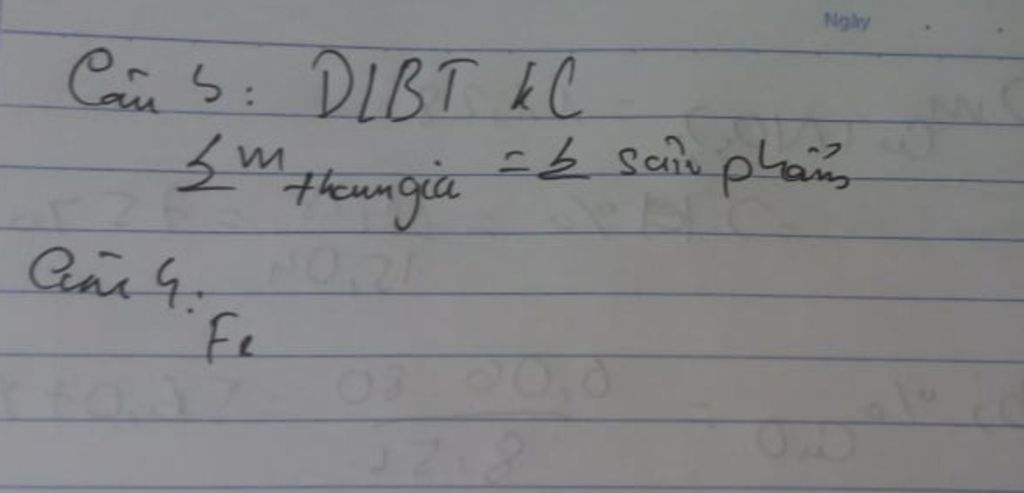 Ngày
Câu 5: DLBT KC
Σ m tham gia = Σ sản phẩm
Câu 4.
Fe